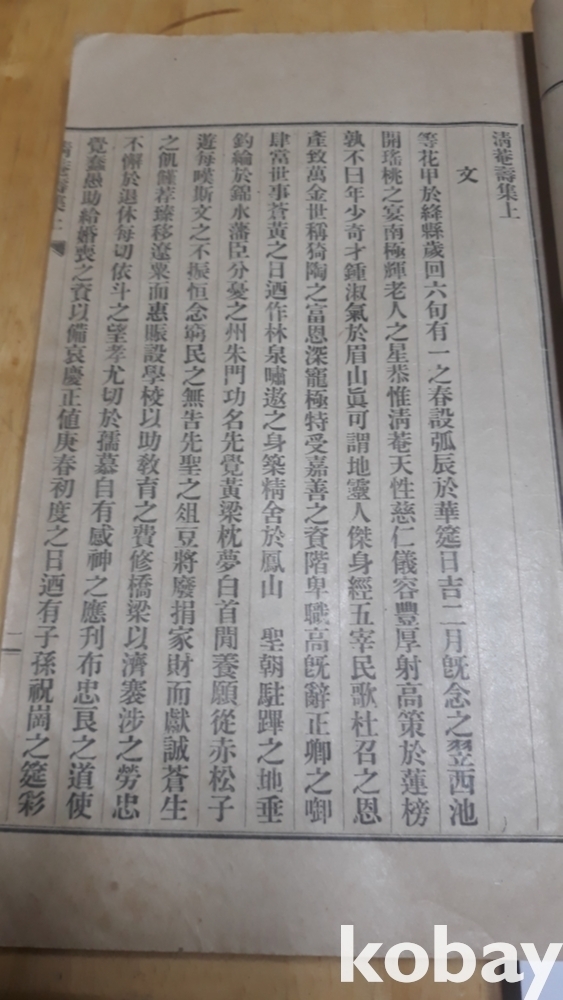 清菴壽集上
文
等花甲於絳縣歲回六旬有一之春設弧辰於華筵日吉二月旣念之翌西池
開瑤桃之宴南極輝老人之星恭惟淸菴天性慈仁儀容豐厚射高策於蓮榜
孰不曰年少奇才鍾淑氣於眉山眞可謂地靈人傑身經五宰民歌杜召之恩
產致萬金世稱猗陶之富恩深寵極特受嘉善之資階卑職高旣辭正卿之啣
肆當世事蒼黃之日迺作林泉嘯遨之身築精舍於鳳山 聖朝駐蹕之地垂
釣綸於錦水藩臣分憂之州朱門功名先覺黃粱枕夢白首閒養願從赤松子
遊每嘆斯文之不振恒念窮民之無告先聖之俎豆將廢捐家財而獻誠蒼生
之飢饉荐臻移遼粟而惠賑設學校以助敎育之費修橋梁以濟褰涉之勞忠
不懈於退休每切依斗之望孝尤切於孺慕自有感神之應刊布忠良之道使
覺蠢愚助給婚喪之資以備哀慶正値庚春初度之日迺有子孫祝崗之筵彩
淸菴壽集上
一
kobay